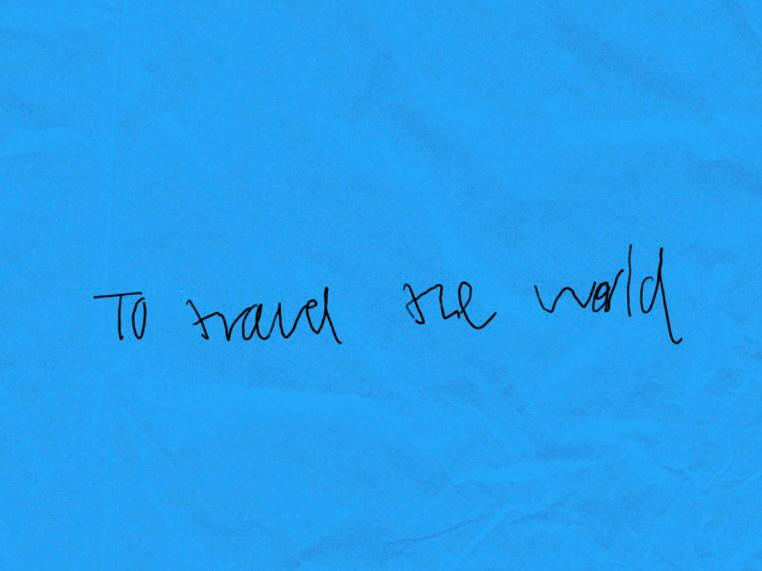 To travel the world